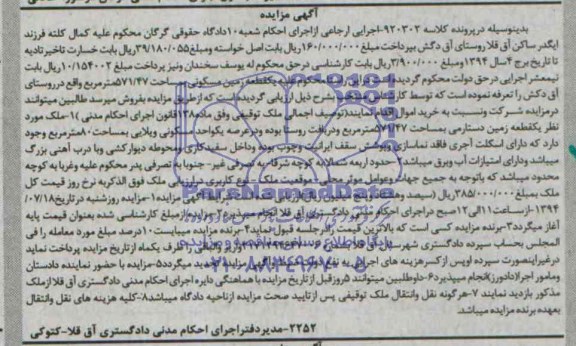 آگهی مزایده
بدینوسیله درپرونده کلاسه ۹۲۰۳۰۲-اجرایی ارجاعی ازاجرای احکام شعبه۱۰دادگاه حقوقی گرگان محکوم علیه کمال کلته فرزند
ایگدر ساکن آق قلا روستای آق دگش بپرداخت مبلغ۱۶۰/۰۰۰/۰۰۰ریال بابت اصل خواسته ومبلغ۳۹/۱۸۰/۰۵۵ریال بابت خسارت تاخیرتادیه
تا تاریخ برج ۴سال ۱۳۹۴ومبلغ ۳/۹۰۰/۰۰۰ریال بابت کارشناسی درحق محکوم له یوسف سخندان ونیز پرداخت مبلغ ۱۰/۱۵۴۰۰۲ریال بابت
نیمعشر اجرایی درحق دولت محکوم گردیده یکقطعه زمین مسکونی بمساحت ۵۷۱/۴۷مترمربع واقع درروستای
آق دکش را تعرفه نموده است که توسط کارشناس بشرح ذیل ارزیابی گردیده است که ازطریق مزایده بفروش میرسد طالبین میتوانند
درمزایده شرکت ونسبت به خرید اموال اقدام نمایند(توصیف اجمالی ملک توقیفی وفق ماده۱۳۸قانون اجرای احکام مدنی )۱-ملک مورد
نظر یکقطعه زمین دستارمی بمساحت ۵۷۱/۴۷مترمربع ودربافت روستا بوده ودرعرصه یکواحد مسکونی ویلایی بمساحت ۸۰مترمربع وجود
دارد که دارای اسکلت آجری فاقد نماسازی وپوشش سقف ایرانیت وچوب بوده وداخل سفیدکاری ومحوطه دیوارکشی وبا درب آهنی بزرگ
میباشد ودارای امتیازات آب وبرق میباشد حدود اربعه شمالا به کوچه شرقا به تصرفی غیر- جنوبا به تصرفی پدر محکوم علیه وغربا به کوچه
محدود میباشد که باتوجه به جمیع جهات وعوامل موثر محل وموقعیت ملک نوع کاربری درارزیابی ملک فوق الذکربه نرخ روز قیمت کل
ملک بمبلغ۳۸۵/۰۰۰/۰۰۰ریال (سیصد وهشتاد وپنج میلیون ریال)ارزیابی شده است شرایط آگهی مزایده۱-مزایده روزشنبه درتاریخ۰۷/۱۸/
۱۳۹۴-ازساعت۱۱الی۱۲صبح دراجرای احکام مدنی دادگستری آق قلا انجام میپذیرد۲-مزایده ازمبلغ کارشناسی شده بعنوان قیمت پایه
آغاز میگردد۳-برنده مزایده کسی است که بالاترین قیمت را درجلسه قبول نماید۴-برنده مزایده میبایست۱۰درصد مبلغ مورد معامله را فی
المجلس بحساب سپرده دادگستری شهرستان آق قلا ظرف یکماه ازتاریخ مزایده پرداخت نماید
درغیراینصورت سپرده اوپس ازکسرهزینه های اجرائی به نفع دولت ضبط ومزایده تجدید میگردد۵-مزایده با حضور نماینده دادستان
ومامور اجرا(دادورز)انجام میپذیرد۶-داوطلبین میتوانند ۵روزقبل ازتاریخ مزایده با هماهنگی دایره اجرای احکام مدنی دادگستری آق قلا ازملک
مذکور بازدید نمایند ۷-هرگونه نقل وانتقال ملک توقیفی پس ازتایید صحت مزایده ازناحیه دادگاه میباشد۸-کلیه هزینه های نقل وانتقال
بعهده برنده مزایده میباشد.
۲۲۵۲-مدیردفتراجرای احکام مدنی دادگستری آق قلا-کتوکی